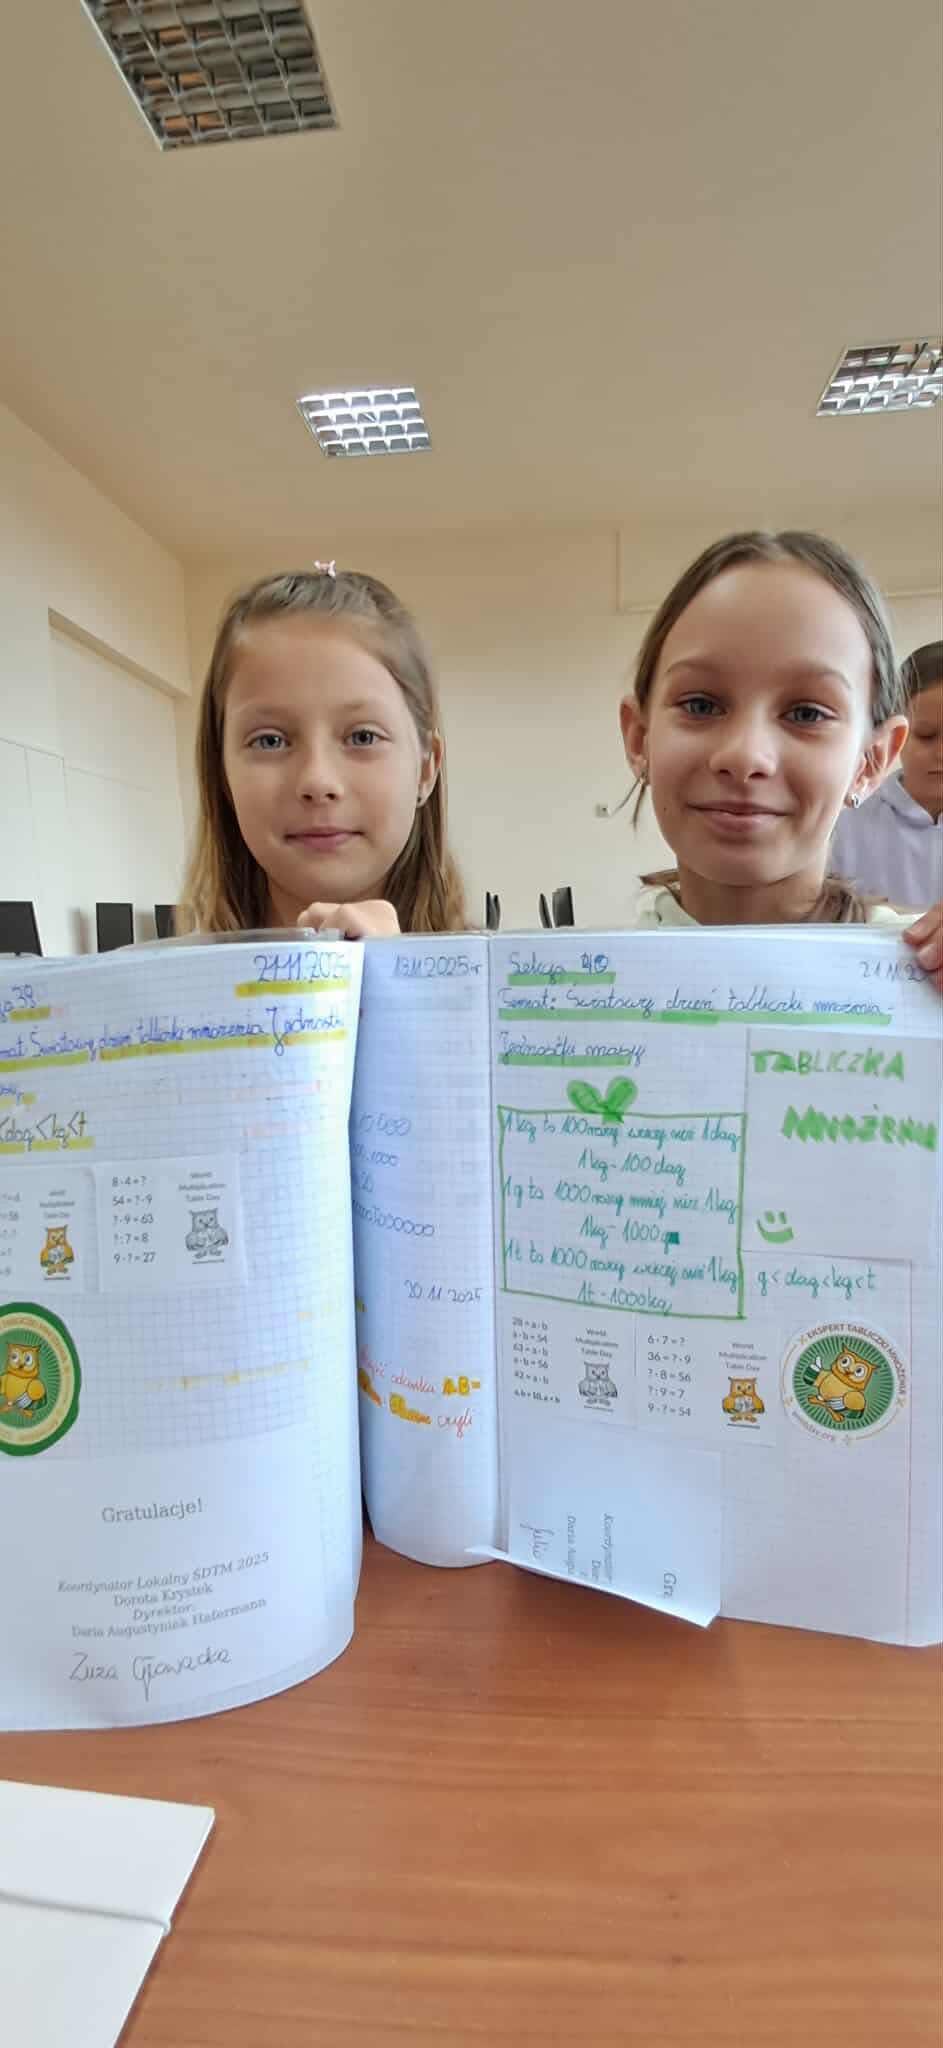 38
21.11.2025
Światowy dzień tabliczki mnożenia Jednostki
<dag<kg<t
World
Multiplication
Table Day
8·4=?
54=?·9
?·9=63
?:7=8
9·?=27
World
Multiplication
Table Day
Gratulacje!
Koordynator Lokalny ŚDTM 2025
Dorota Krystek
Dyrektor:
Daria Augustyniak Hafermann
Zuza Głowacka
13.11.2025r
20.11.2025
AB=
czyli
Lekcja 40
21.11.20
Temat: Światowy dzień tabliczki mnożenia-
Jednostki masy
TABLICZKA
MNOŻENIA
1 kg to 100 razy więcej niż 1 dag
1kg-100 dag
1g to 1000 razy mniej niż 1kg
1kg-1000g
1t to 1000 razy więcej niż 1kg
1t-1000kg
g<dag<kg<t
28=a·b
a·b=54
63=a·b
a·b=56
42=a·b
World
Multiplication
Table Day
6·7=?
36=?·9
?·8=56
?:9=7
9·?=54
World
Multiplication
Table Day
EKSPERT TABLICZKI MNOŻENIA
Gra
Koordynator
Dor
Daria Augu
Julia